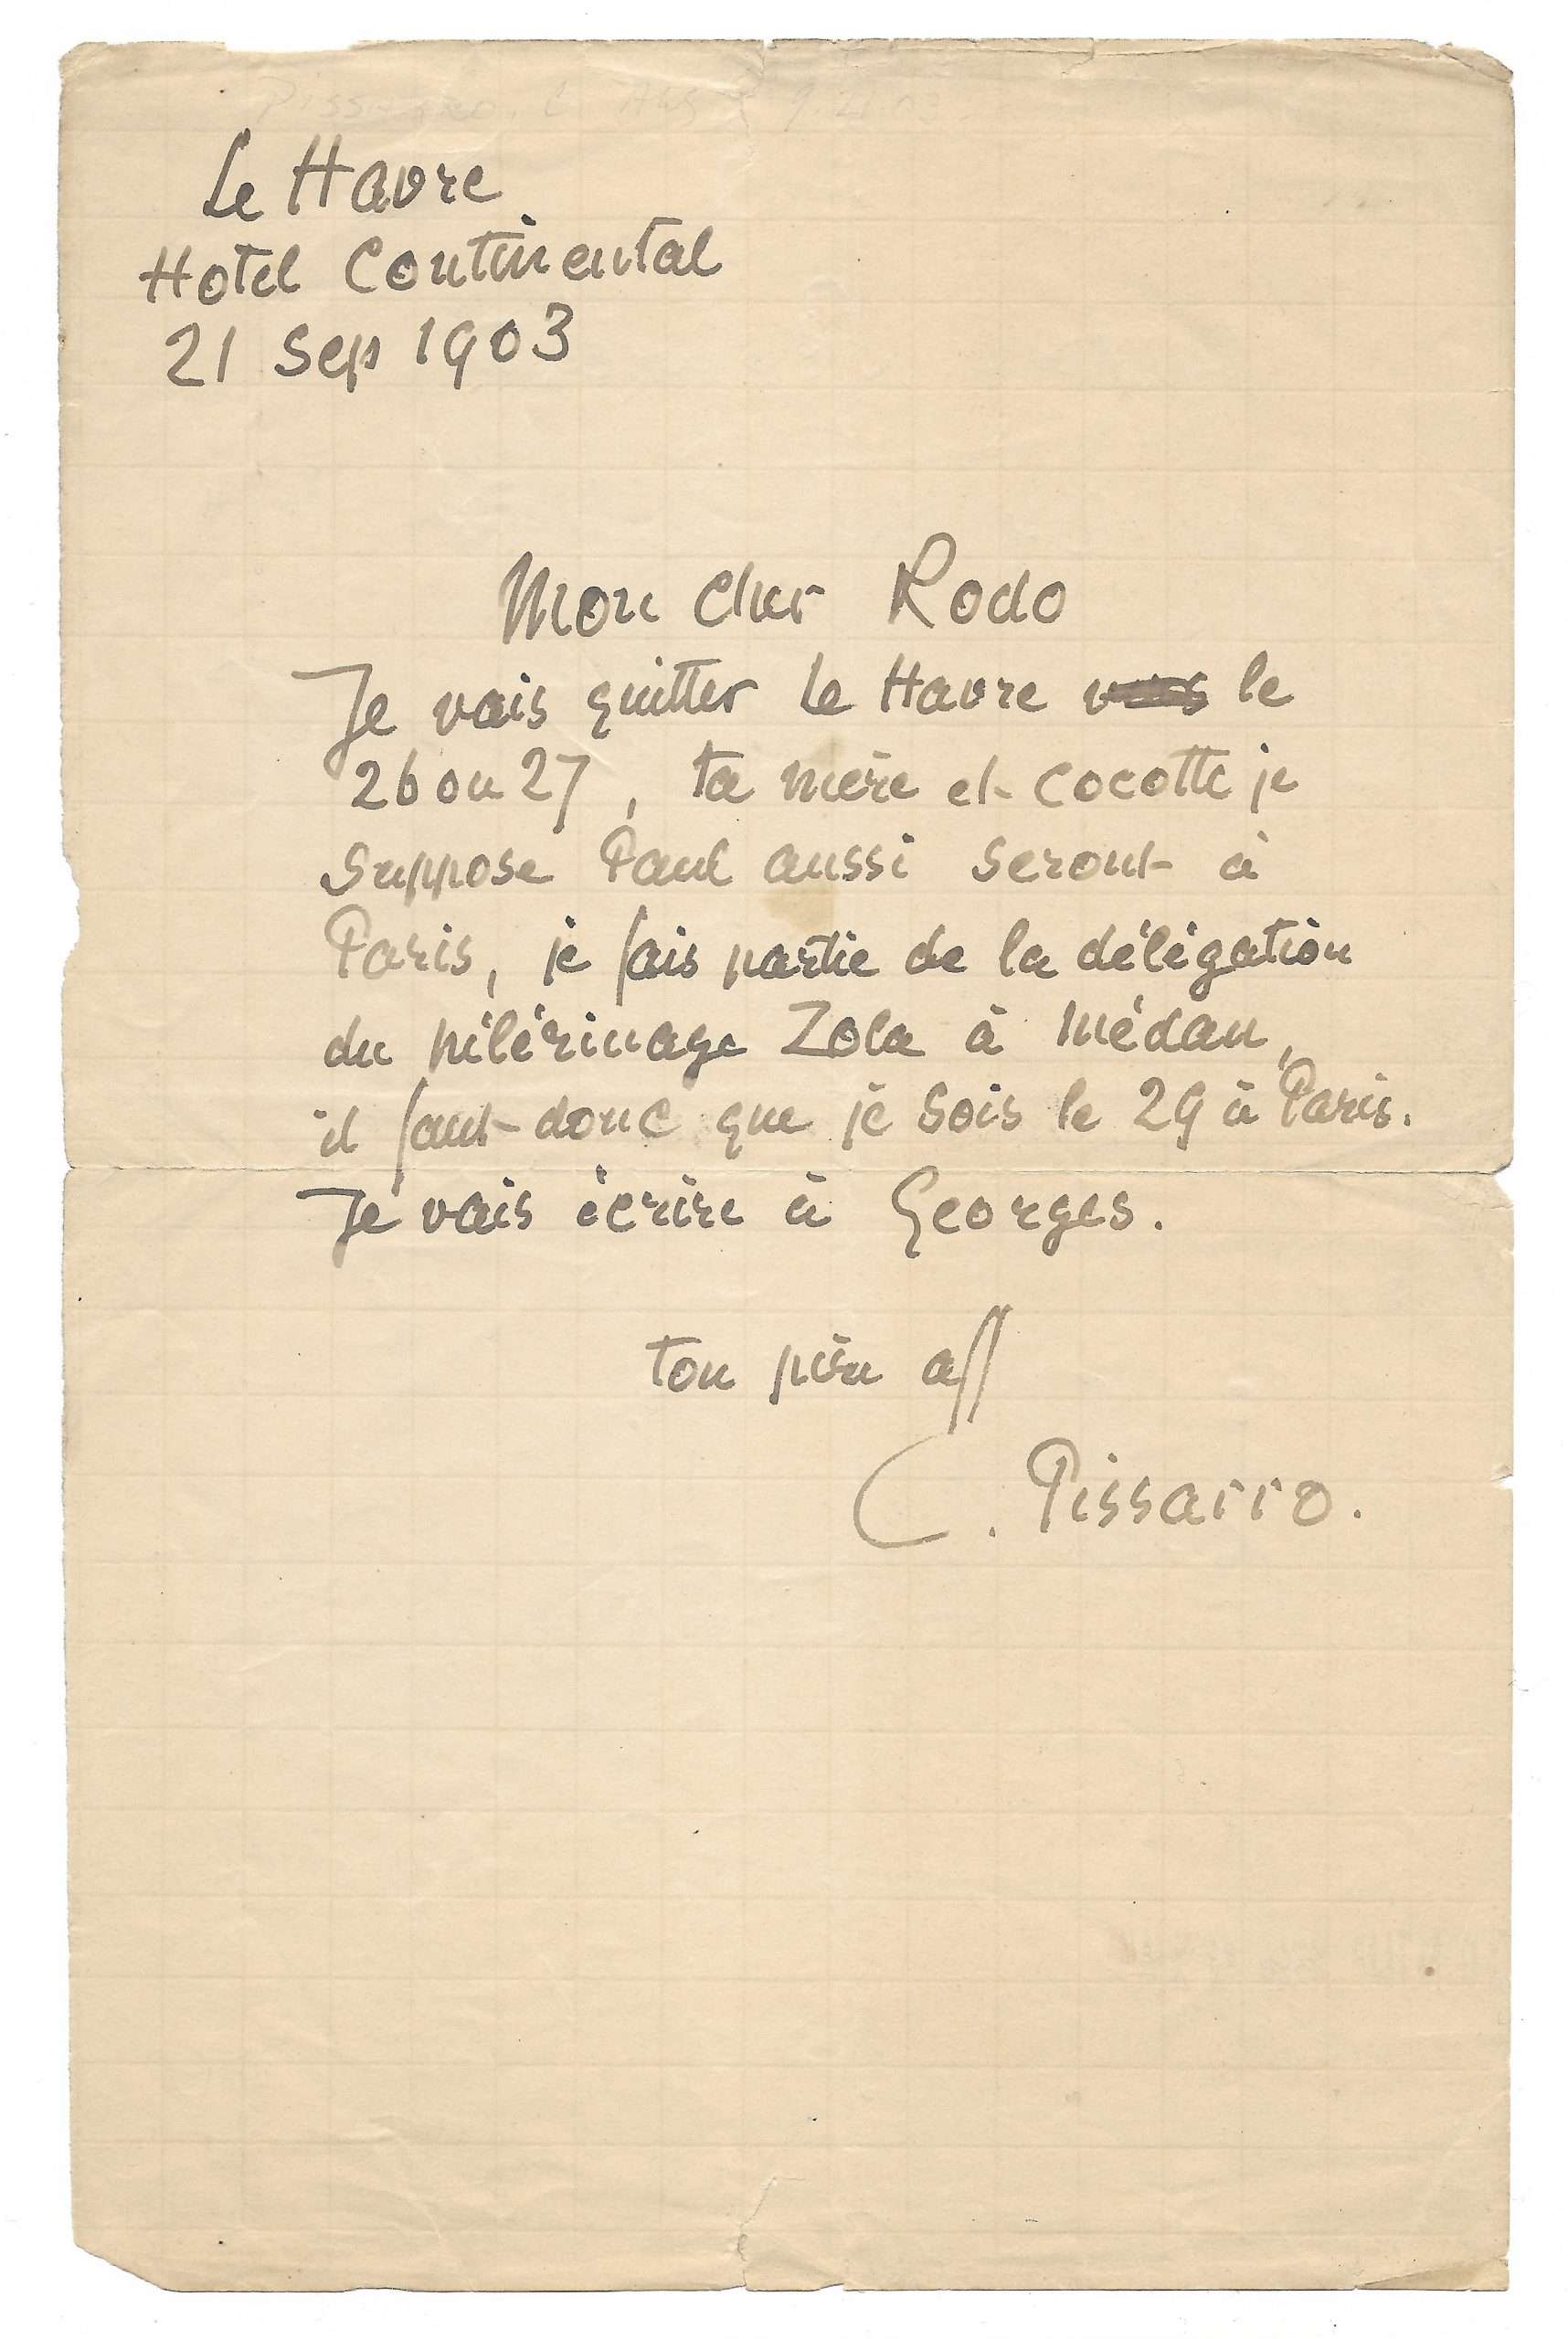 Le Havre
Hotel Continental
21 Sep 1903
Mon cher Rodo
Je vais quitter Le Havre le
26 ou 27, ta mère et Cocotte je
suppose Paul aussi seront à
Paris, je fais partie de la délégation
du pélérinage Zola à Médan,
il faut donc que je sois le 29 à Paris.
Je vais écrire à Georges.
ton père aff
C. Pissarro.